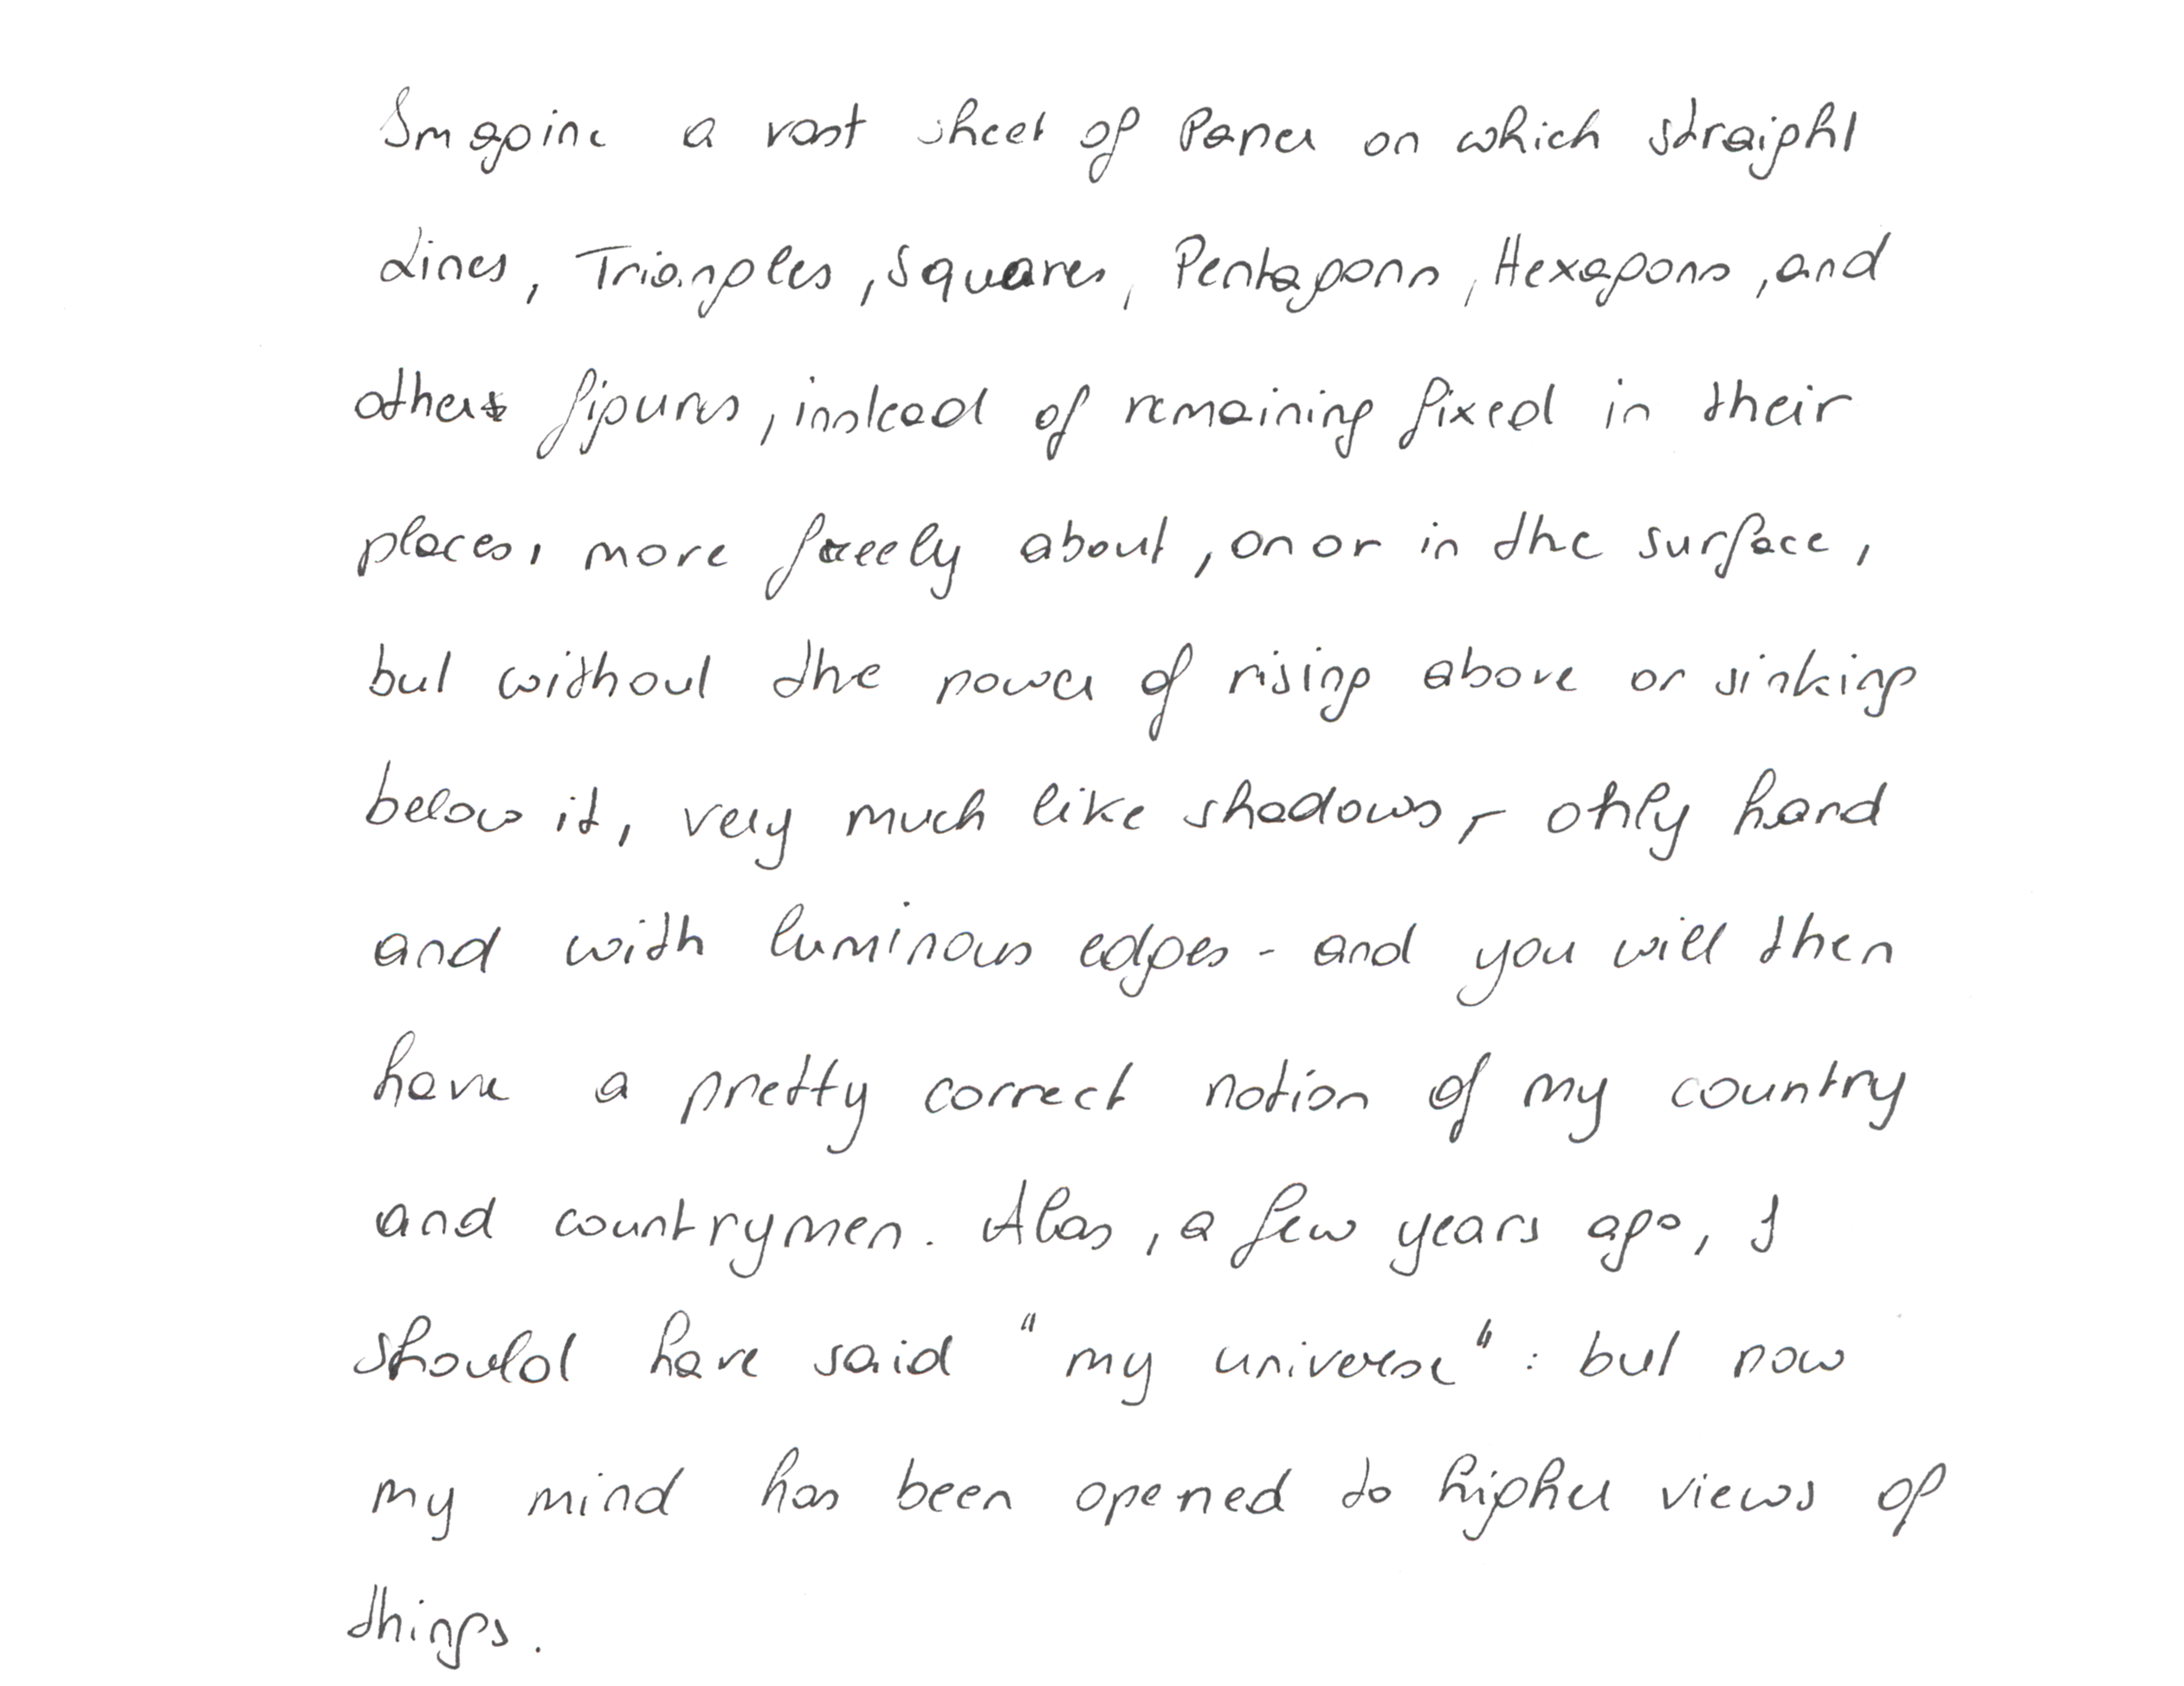 Imagine a vast sheet of Paper on which straight
Lines, Triangles, Squares, Pentagons, Hexagons, and
other figures, instead of remaining fixed in their
places, more freely about, on or in the surface,
but without the power of rising above or sinking
below it, very much like shadows, - only hard
and with luminous edges - and you will then
have a pretty correct notion of my country
and countrymen. Alas, a few years ago, I
should have said "my universe": but now
my mind has been opened to higher views of
things.